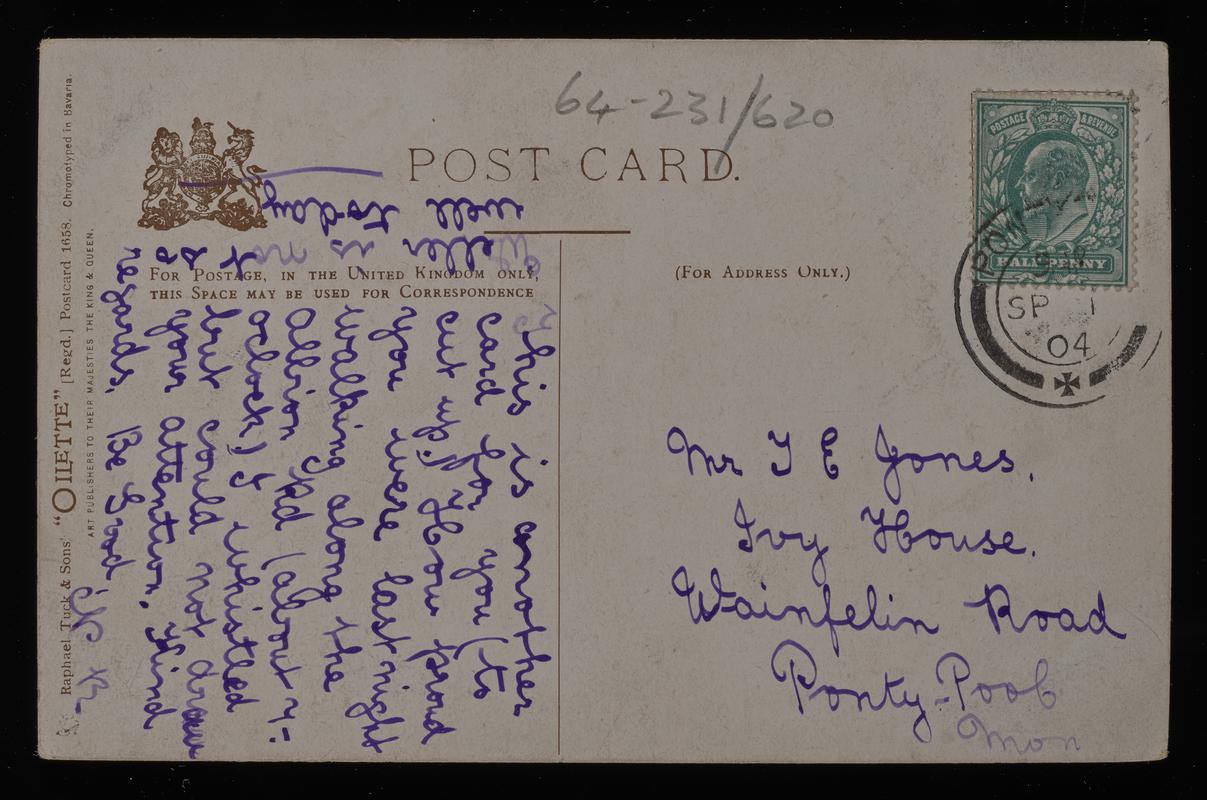 64-231/620
POST CARD.
POSTAGE & REVENUE
HALFPENNY
SP 1
04
FOR POSTAGE, IN THE UNITED KINGDOM ONLY,
THIS SPACE MAY BE USED FOR CORRESPONDENCE
(FOR ADDRESS ONLY.)
Mr T E Jones.
Ivy House.
Wainfelin Road
Ponty-Pool
Mon
This is another
card for you (to
cut up). How proud
you were last night
walking along the
Albion Rd (about 7-
oclock) I whistled
but could not draw
your attention. Kind
regards. Be Good
is not so
well today
Raphael Tuck & Sons' "OILETTE" [Regd.] Postcard 1658. Chromotyped in Bavaria.
ART PUBLISHERS TO THEIR MAJESTIES THE KING & QUEEN.